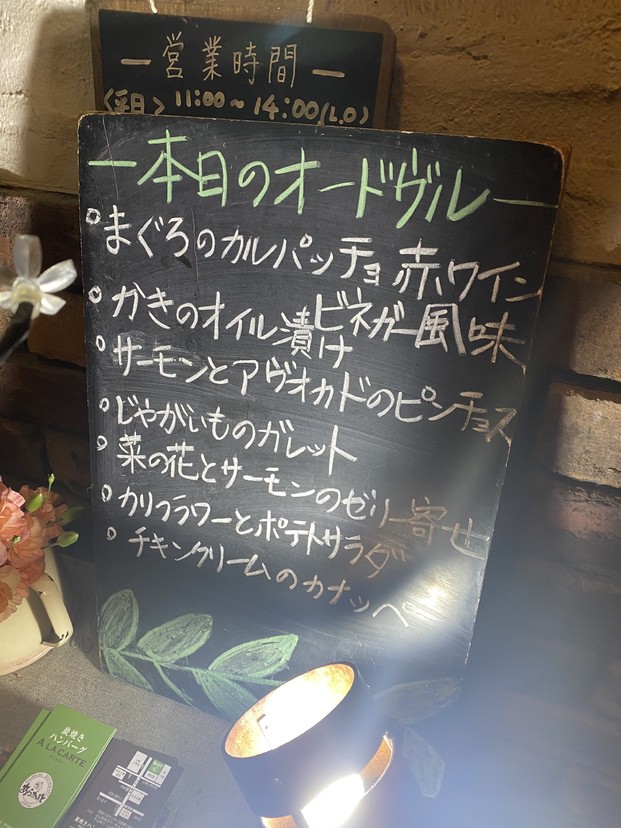 ー営業時間ー
〈平日〉11:00〜14:00(L.O)
ー本日のオードヴルー
○まぐろのカルパッチョ 赤ワイン
ビネガー風味
○かきのオイル漬け
○サーモンとアヴォカドのピンチョス
○じゃがいものガレット
○菜の花とサーモンのゼリー寄せ
○カリフラワーとポテトサラダ
○チキンクリームのカナッペ
炭焼き
ハンバーグ
A LA CARTE